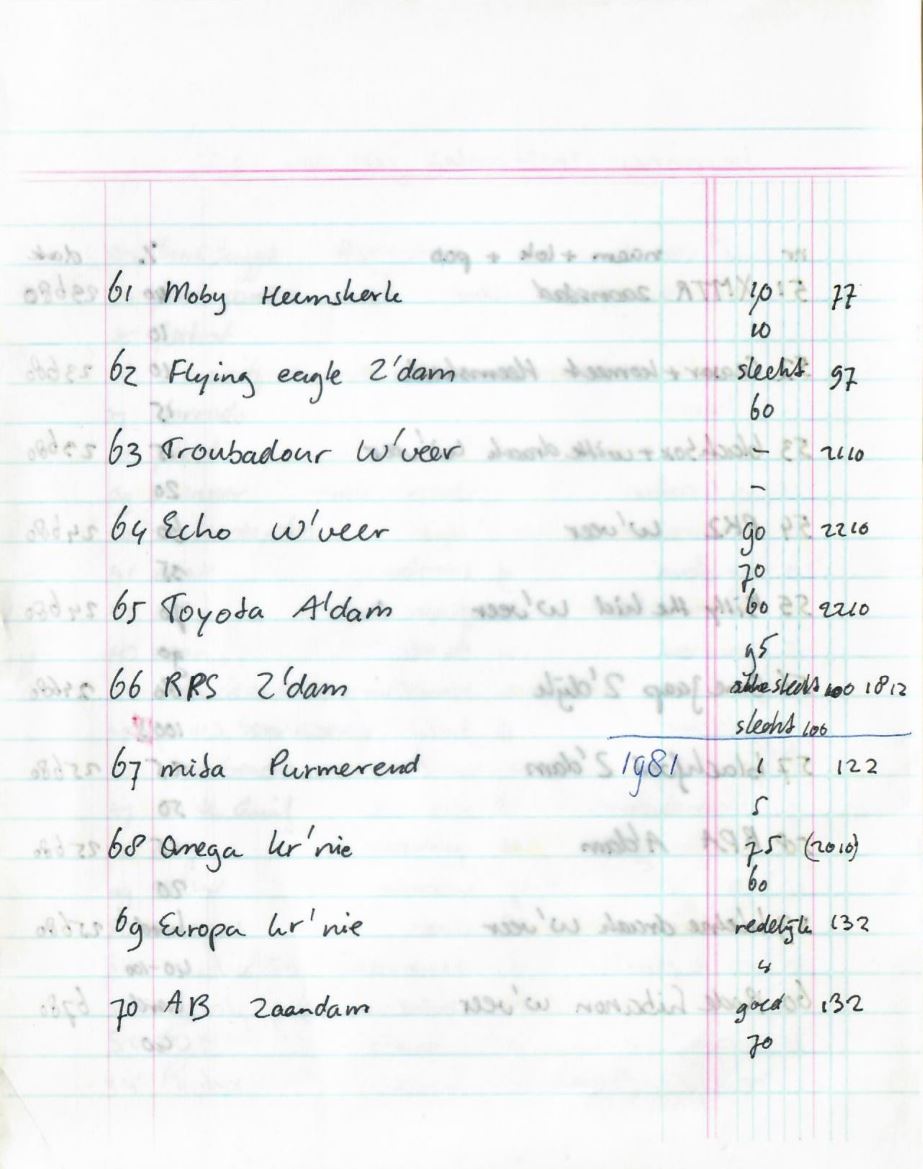 61 Moby Heemskerk 10 77
10
62 Flying eagle Z'dam slecht 97
60
63 Troubadour W'veer – 2110
–
64 Echo W'veer 90 2210
70
65 Toyota A'dam 60 2210
95
66 RRS Z'dam slecht 100 1812
slecht 100
67 mida Purmerend 1981 1 122
5
68 Omega kr'nie 75 (2010)
60
69 Europa kr'nie redelijk 132
4
70 AB Zaandam goed 132
70